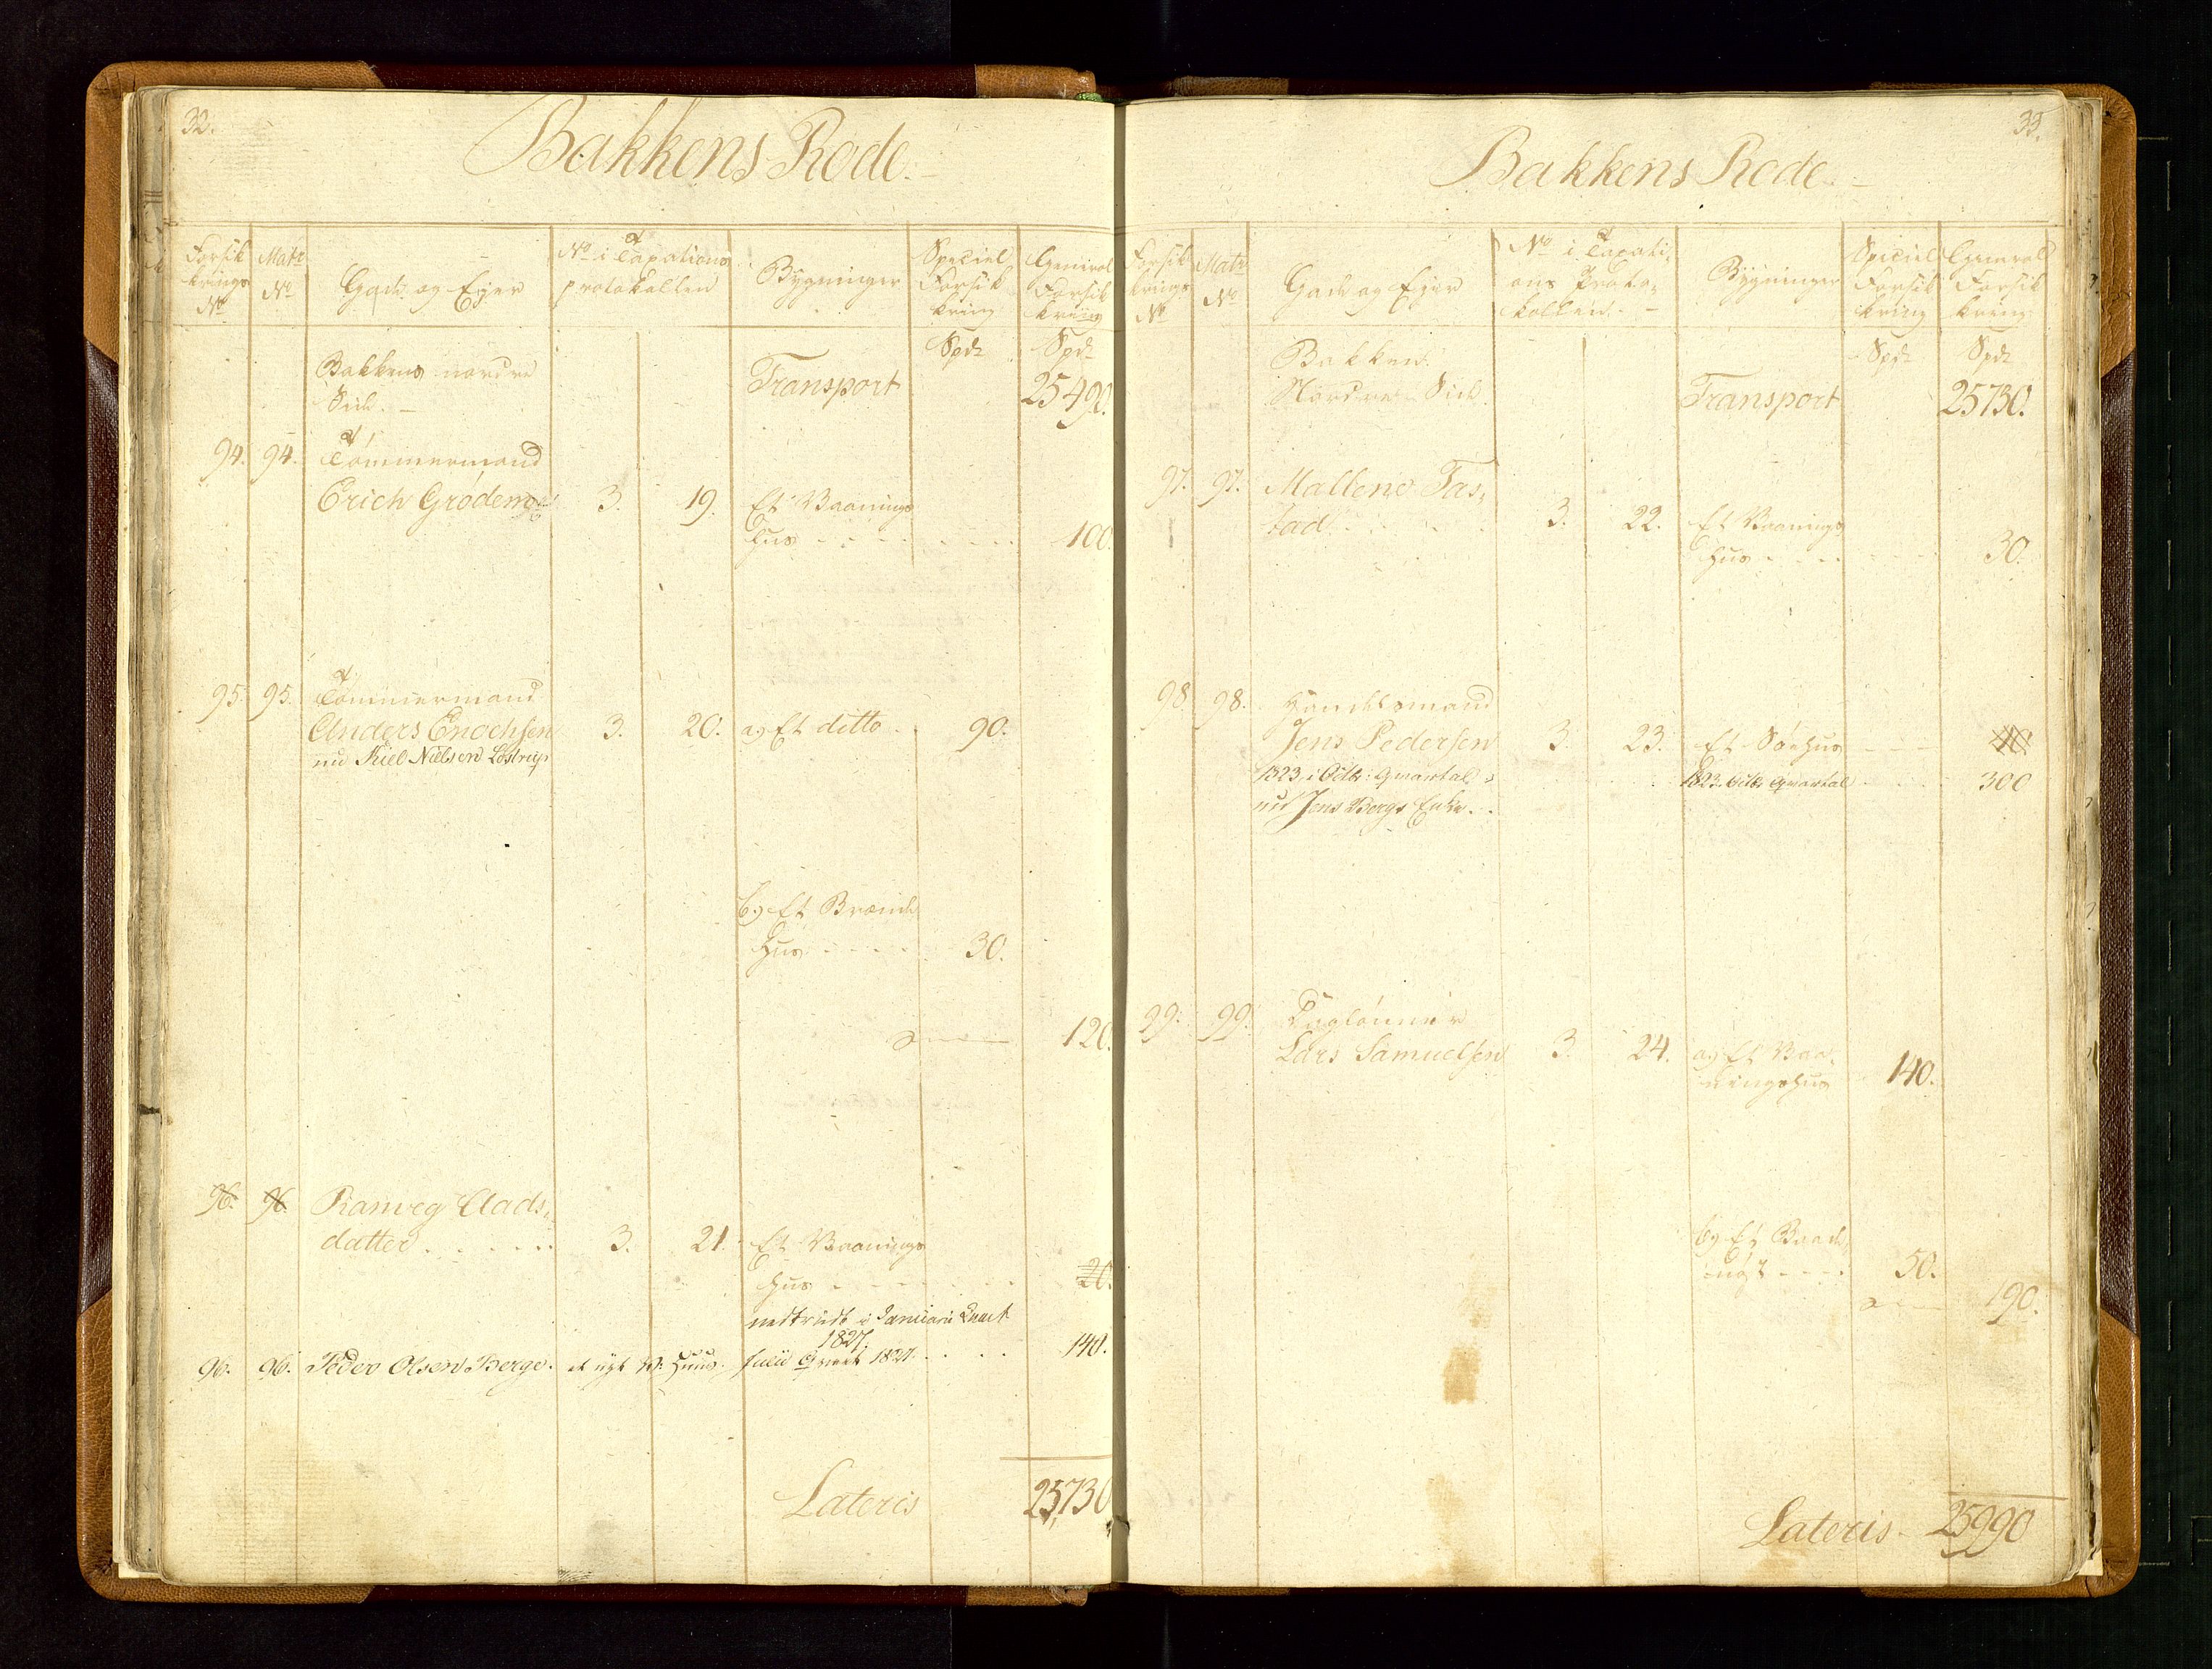 32.
Bakkens Rode.
Forsik
krings
No
Matr
No
Gade og Ejer
No i Taxations
protokollen
Bygninger
Speciel
Forsik
kring
General
Forsik
kring
Spdr
Spdr
Bakkens nordre
Side.
Transport
25490.
94. 94. Tømmermand
Erich Grødem 3. 19. Et Vaanings
Huus 100.
95. 95. Tømmermand
Anders Enochsen 3. 20. a, Et ditto 90.
nu Kiel Nielsen Løstrup
b, Et Brænde
Huus 30.
120.
96. 96. Ranveg Aads,
datter 3. 21. Et Vaanings
Huus 20.
nedtrudt i Januari Quart
1827.
96. 96. Peder Olsen Berge. et nyt W: Huus. Julii Qvart 1827. 140.
Lateris 25730
33.
Bakkens Rode.
Forsik
krings
No
Matr
No
Gade og Ejer
No i Taxati,
ons Proto,
kollen.
Bygninger
Speciel
Forsik
kring
General
Forsik
kring
Spdr
Spdr
Bakkens
Nordre Side.
Transport
25730.
97. 97. Mallene Tas,
tad 3. 22. Et Vaanings
Huus 30.
98. 98. Handelsmand
Jens Pedersen 3. 23. Et Søehuus 40.
1823 i Octbr: Qvartal 1823. Octbr Qvartal 300
nu Jens Bergs Enke.
99. 99. Daglønner
Lars Samuelsen 3. 24. a, Et Vaa,
ningshuus 140.
b, Et Baade,
nøst 50.
190.
Lateris 25990